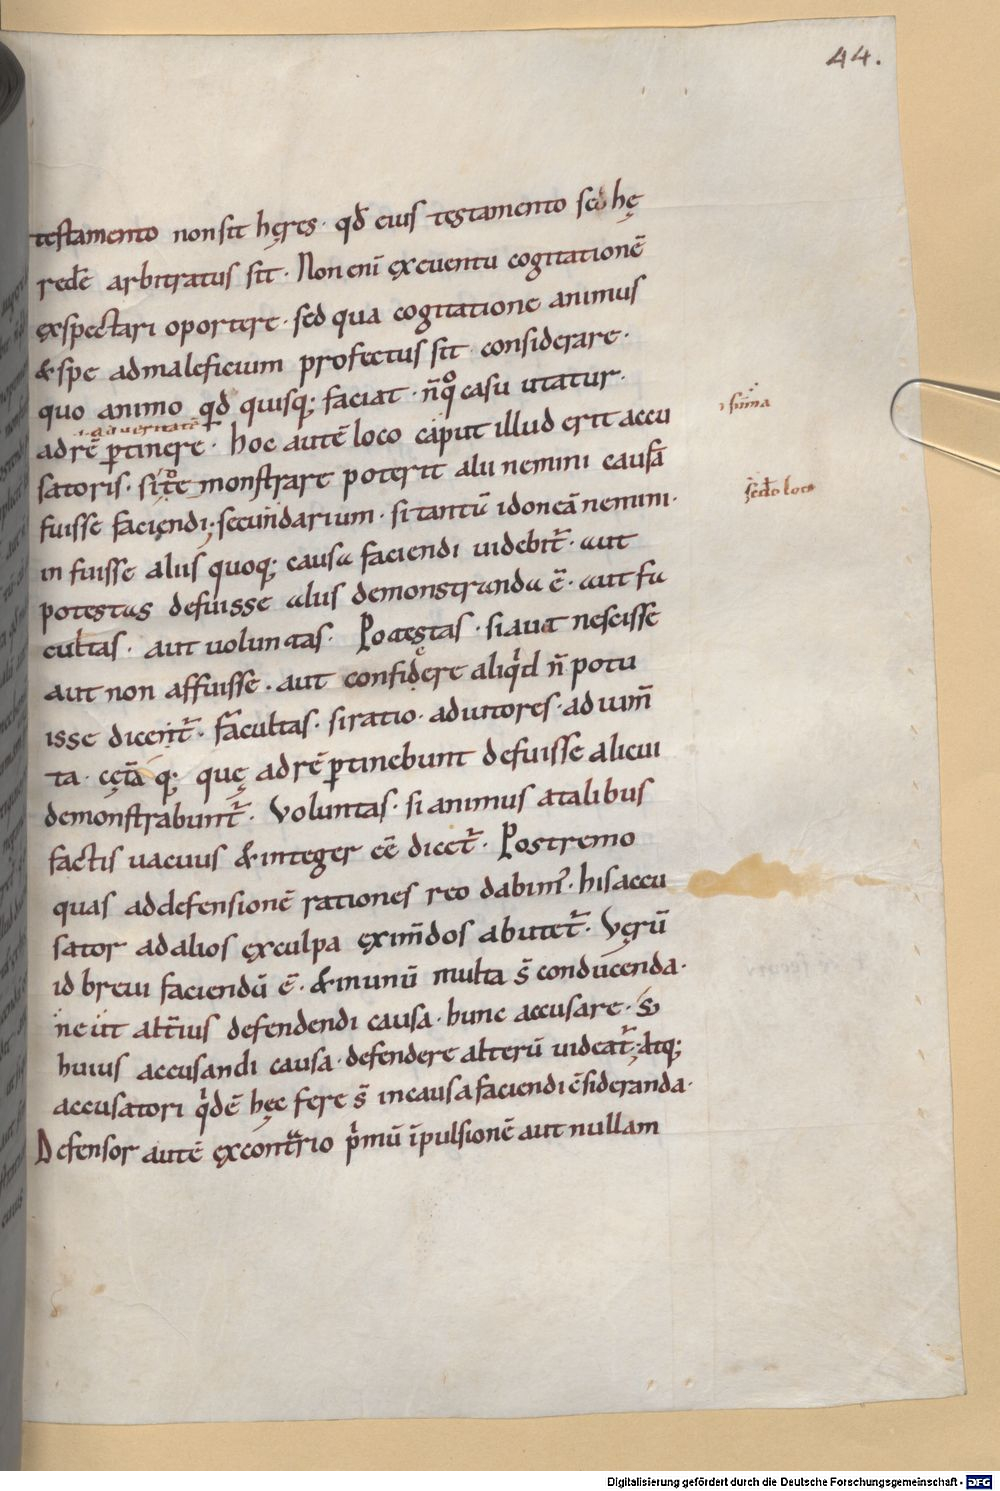 44.
testamento non sit hęres· qđ eius tęstamento sed hę
redē arbitratus sit· Non enī ęx euentu cogitationē
ęxspectari oportere· sed qua cogitatione animus
& spe ad maleficium profectus sit· considerare·
quo animo qđ quisq; faciat· n̄ qͦ casu utatur·
.i. ad ueritatē
ad rē ꝑtinere· hoc autē loco caput illud erit accu
.i. sūma
satoris· si monstrare poterit alii nemini causā
fuisse faciendi; secundarium· si tantū idoneā nemini·
secdo loco
in fuisse alius quoq; causa faciendi uidebit᷑· aut
potestas defuisse aliis demonstranda ē· aut fa
cultas· aut uoluntas· Potestas· si aut nescisse
aut non affuisse· aut conficere aliqͥd n̄ potu
isse dicent᷑· facultas· si ratio· adiutores· adium̄
ta· cętā q; quę ad rē ꝑtinebunt defuisse alicui
demonstrabunt᷑· Voluntas· si animus a talibus
factis uacuus & integer eē dicet᷑· Postremo
quas ad defensionē rationes reo dabim᷒· his accu
sator ad alios ęx culpa ęxim̄dos abutet᷑· Vęrū
id breui faciendū ē· & in unū multa s̄ conducenda·
ne ut alt̄ius defendendi causa· hunc accusare· s;
huius accusandi causa· defendere alterū uideat᷑; atq;
accusatori qͥdē hęc fere s̄ in causa faciendi c̄sideranda·
Defensor autē ęx contrario pͥmū īpulsionē aut nullam
Digitalisierung gefördert durch die Deutsche Forschungsgemeinschaft - DFG